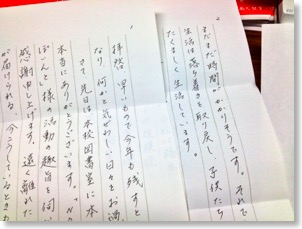 まだまだ時間がかかりそうです。それで
生活は落ち着きを取り戻し、子供たち
たくましく生活しています。
拝啓 早いもので今年も残すと
なり、何かと気ぜわしい日々をお過
さて、先日は本校図書室に本
本当にありがとうございます。
ぽんと様の活動の趣旨を伺い
感謝申し上げます。遠く離れた
が届けられる、今こうしているときも